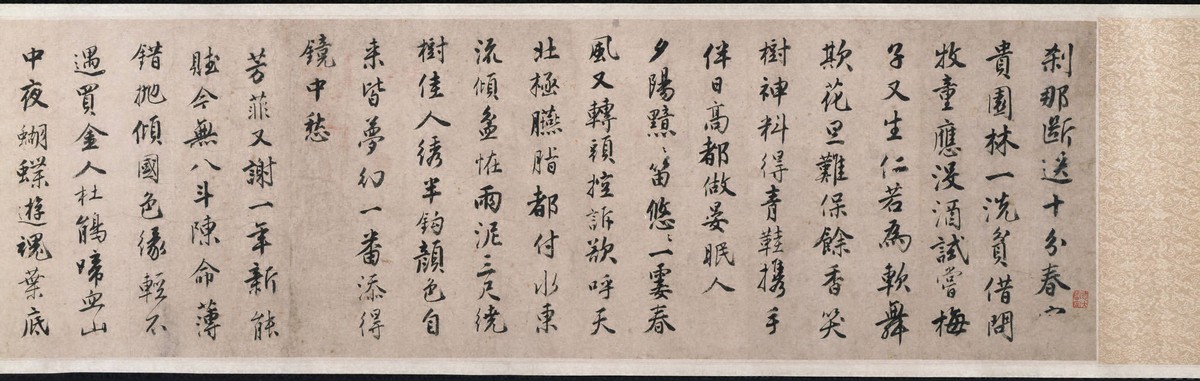 刹那斷送十分春
貴園林一洗貧借問
牧童應沒酒試嘗梅
子又生仁若為軟舞
欺花旦難保餘香笑
樹神料得青鞋携手
伴日高都做晏眠人
夕陽黯黯笛悠悠一霎春
風又轉頭控訴欲呼天
北極臙脂都付水東
流傾盆怪雨泥三尺繞
樹佳人綉半鈎顏色自
來皆夢幻一番添得
鏡中愁
芳菲又謝一年新能
賦今無八斗陳命薄
錯抛傾國色緣輕不
遇買金人杜鵑啼血山
中夜蝴蝶遊魂葉底